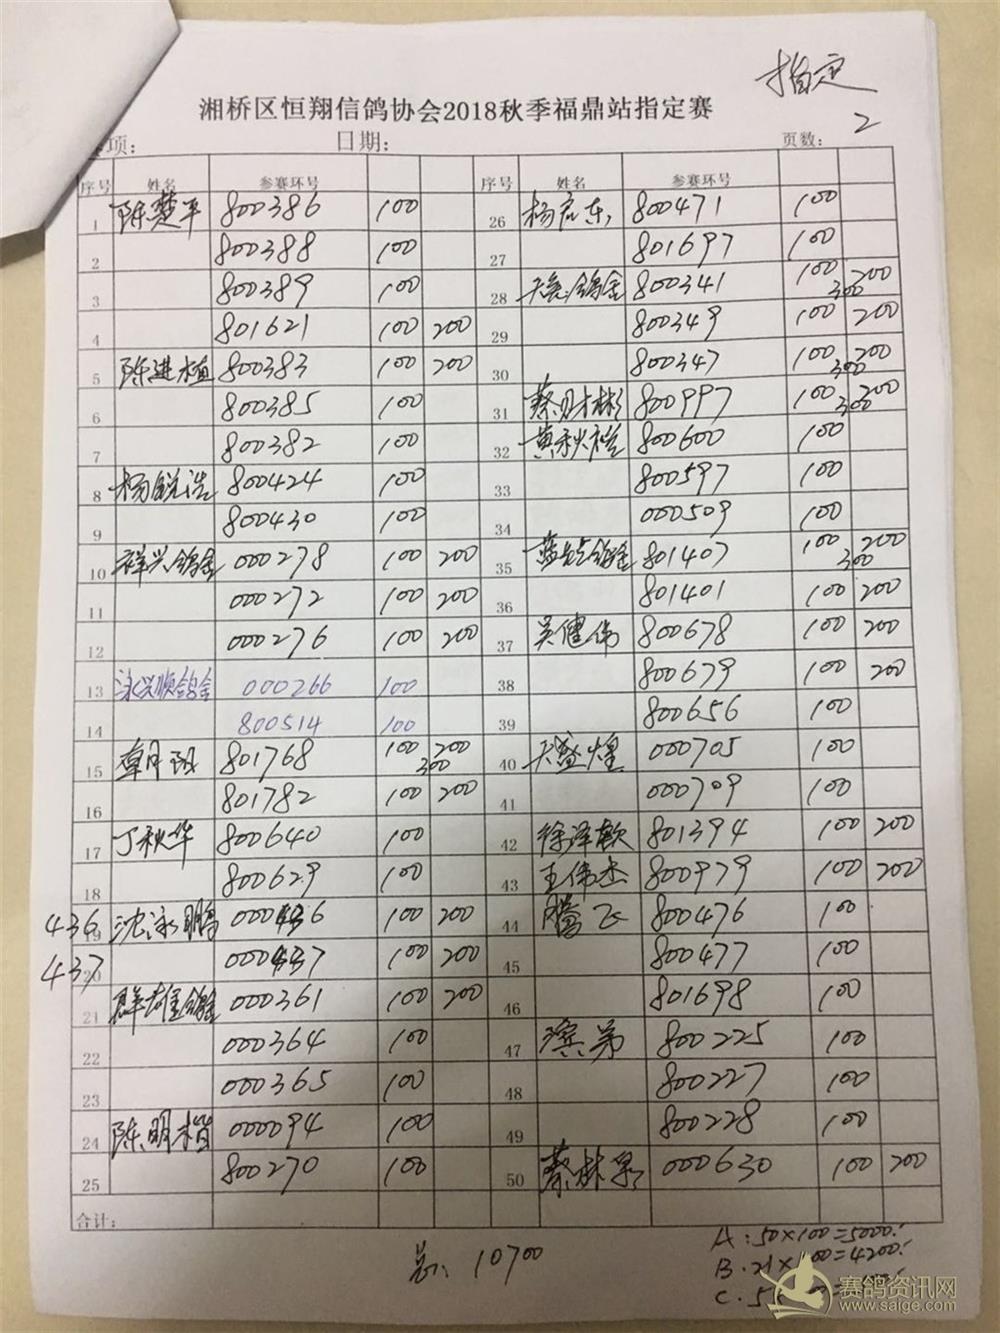 指定
2
湘桥区恒翔信鸽协会2018秋季福鼎站指定赛
项: 日期: 页数:
序号 姓名 参赛环号 序号 姓名 参赛环号
1 陈楚平 800386 100 26 800471 100
2 800388 100 27 801697 100
3 800389 100 28 800341 100 200 300
4 801621 100 200 29 800349 100 200
5 陈进植 800383 100 200 30 800347 100 200 300
6 800385 100 31 蔡财彬 800997 100 200 300
7 800382 100 32 黄秋 800600 100
8 杨锐浩 800424 100 33 800597 100
9 800430 100 34 000509 100
10 祥兴鸽舍 000278 100 200 35 801407 100 200 300
11 000272 100 200 36 801401 100 200
12 000276 100 200 37 吴健伟 800678 100 200
13 泳兴顺鸽舍 000266 100 38 800679 100 200
14 800514 100 39 800656 100
15 801768 100 200 300 40 000705 100
16 801782 100 200 41 000709 100
17 丁秋华 800640 100 42 徐泽 801394 100 200
18 800629 100 43 王伟杰 800979 100 200
436 19 沈泳鹏 000436 100 200 44 腾飞 800476 100
437 20 000437 100 200 45 800477 100
21 群雄鸽舍 000361 100 200 46 801698 100
22 000364 100 47 滨弟 800225 100
23 000365 100 48 800227 100
24 陈明楷 000094 100 49 800228 100
25 800270 100 50 蔡林泉 000630 100 200
合计:
总: 10700
A:50×100=5000
B.21×200=4200
C.5×
赛鸽资讯网
www.saige.com